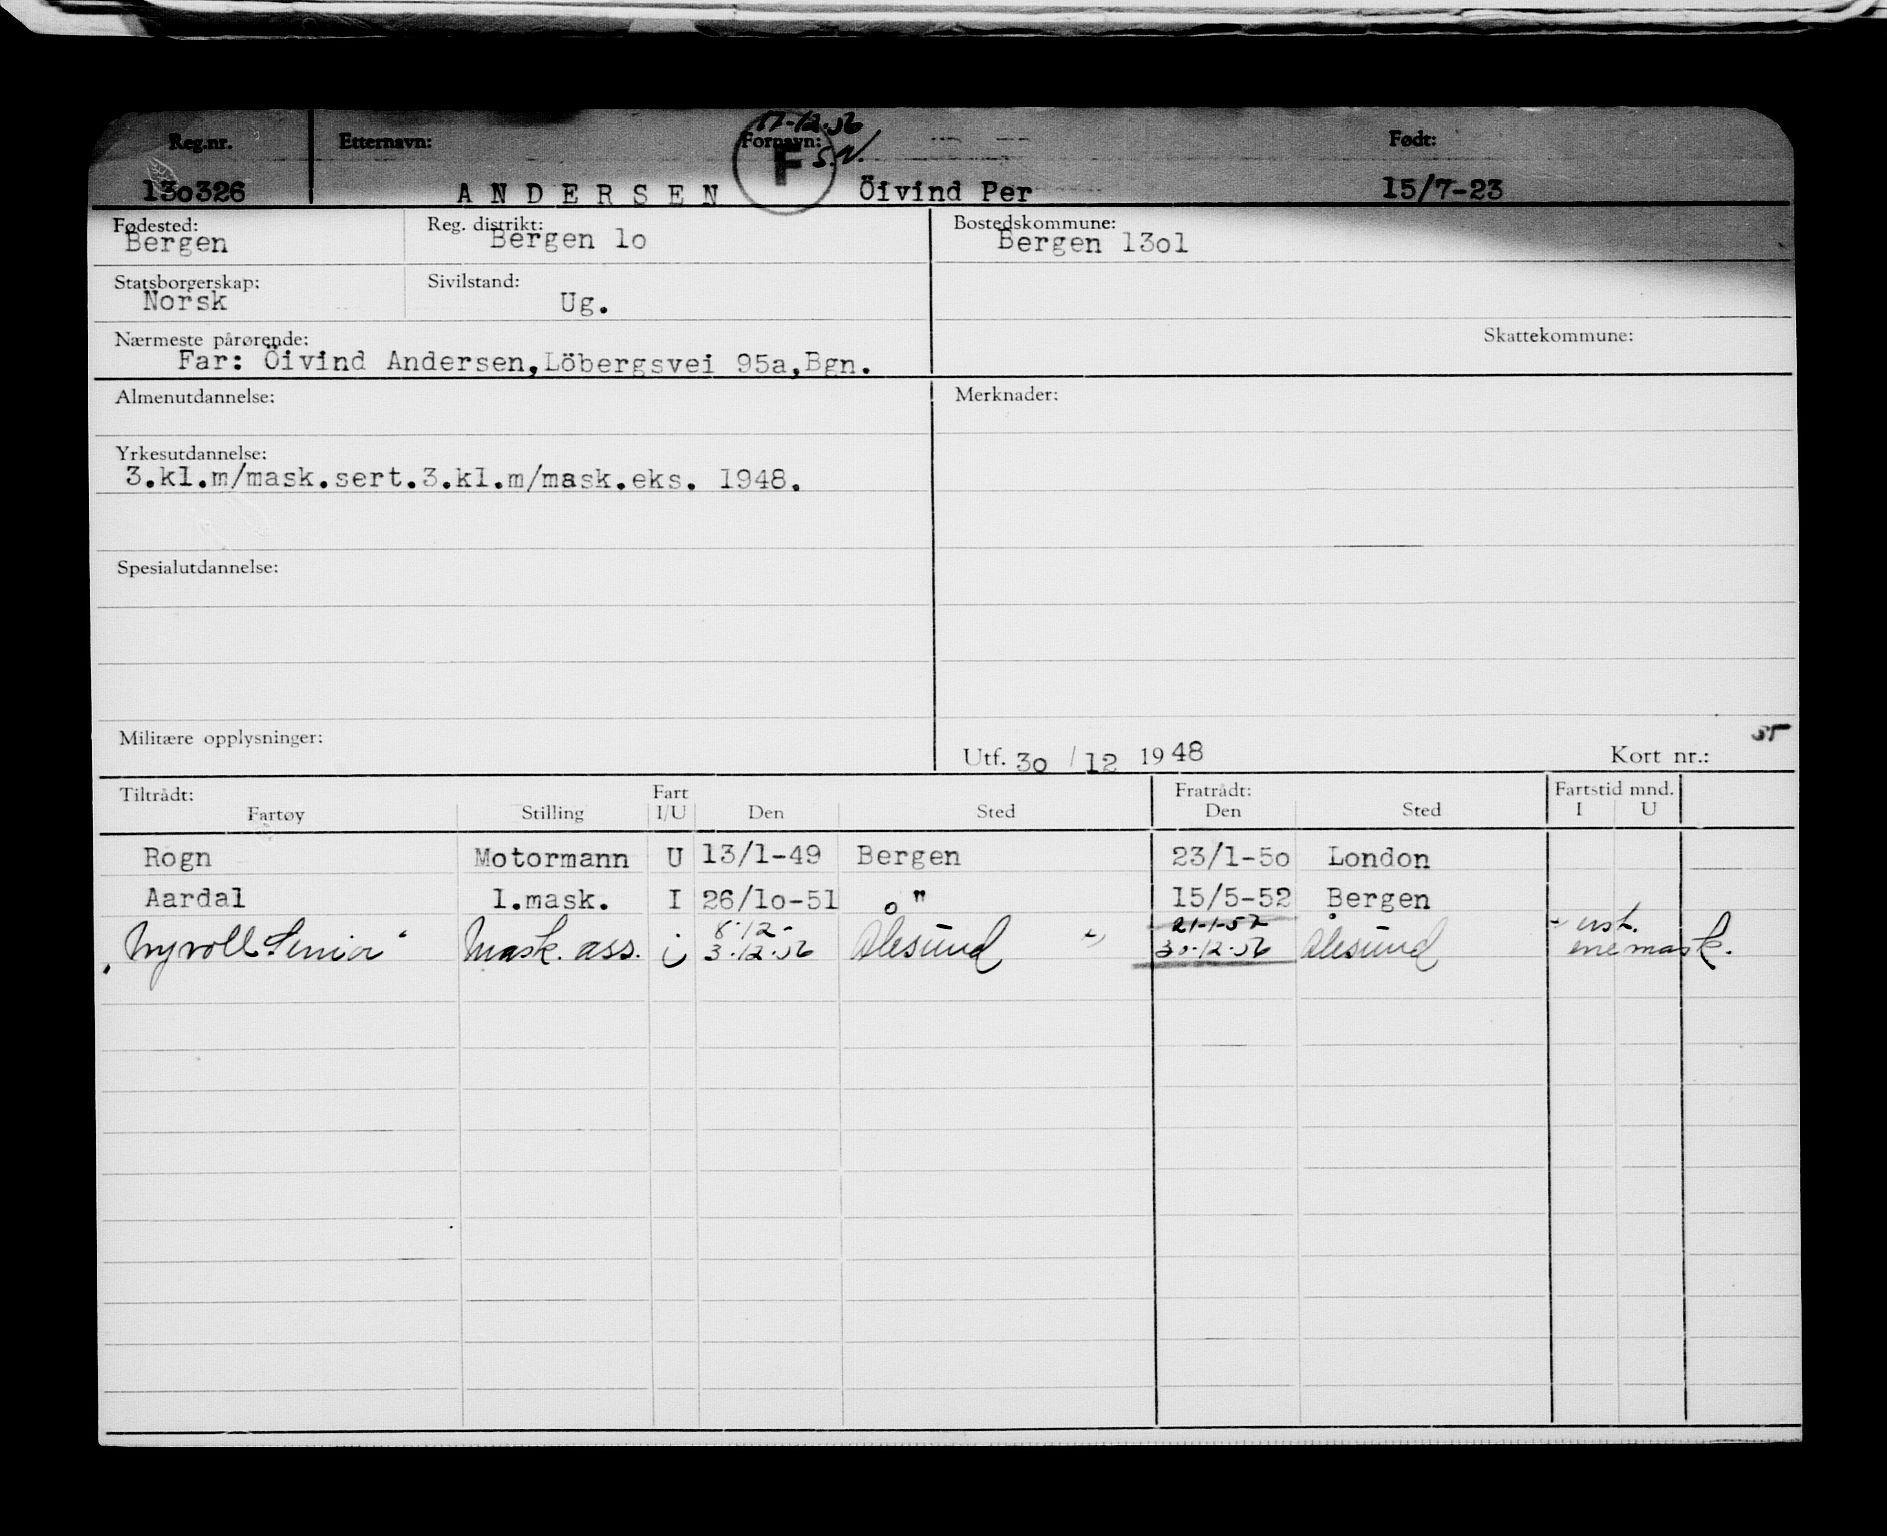 17-12-56
Reg.nr. Etternavn: Fornavn: S.N. Født:
F
13o326 A N D E R S E N Öivind Per 15/7-23
Fødested: Reg. distrikt: Bostedskommune:
Bergen Bergen lo Bergen 13ol
Statsborgerskap: Sivilstand:
Norsk Ug.
Nærmeste pårørende: Skattekommune:
Far: Öivind Andersen,Löbergsvei 95a,Bgn.
Almenutdannelse: Merknader:
Yrkesutdannelse:
3.kl.m/mask.sert.3.kl.m/mask.eks. 1948.
Spesialutdannelse:
Militære opplysninger: Utf. 3o / 12 19 48 Kort nr.:
Tiltrådt: Fart Fratrådt: Fartstid mnd.
Fartøy Stilling I/U Den Sted Den Sted I U
Rogn Motormann U 13/1-49 Bergen 23/1-5o London
Aardal I.mask. I 26/lo-51 " 15/5-52 Bergen
8-12- 21-1-57
Senior" Mask. ass. i 3-12-56 Ålesund " 30-12-56 Ålesund enemask.